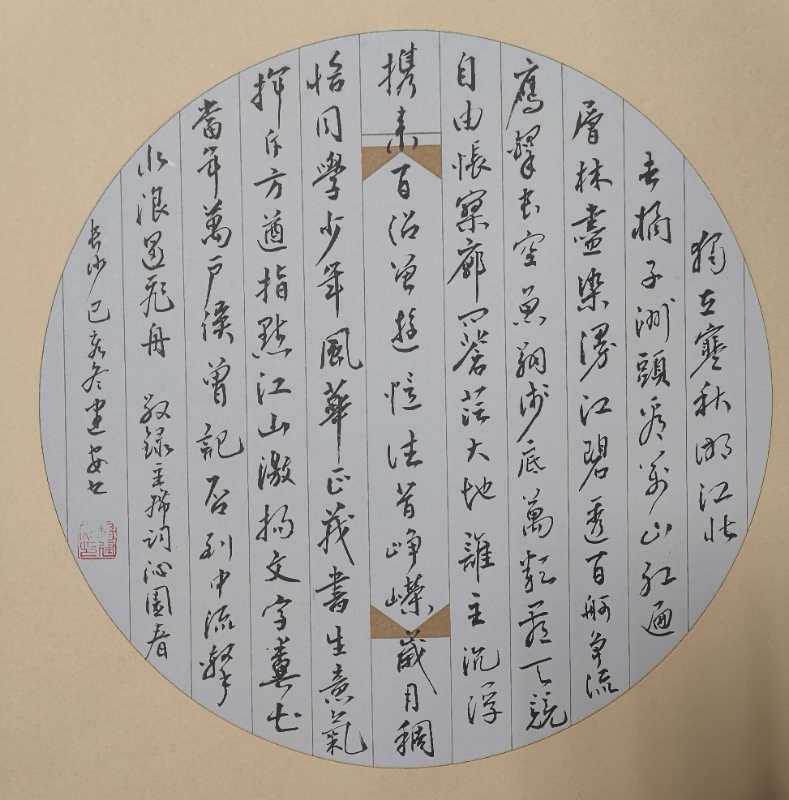 獨立寒秋湘江北
去橘子洲頭看万山紅遍
層林盡染漫江碧透百舸争流
鷹擊長空魚翔淺底萬類霜天競
自由悵寥廓問蒼茫大地誰主沉浮
携來百侣曾遊憶往昔崢嶸歲月稠
恰同學少年風華正茂書生意氣
揮斥方遒指點江山激揚文字糞土
當年萬戶侯曾記否到中流擊
水浪遏飛舟 敬錄主席詞沁園春
長沙 己亥冬建安書